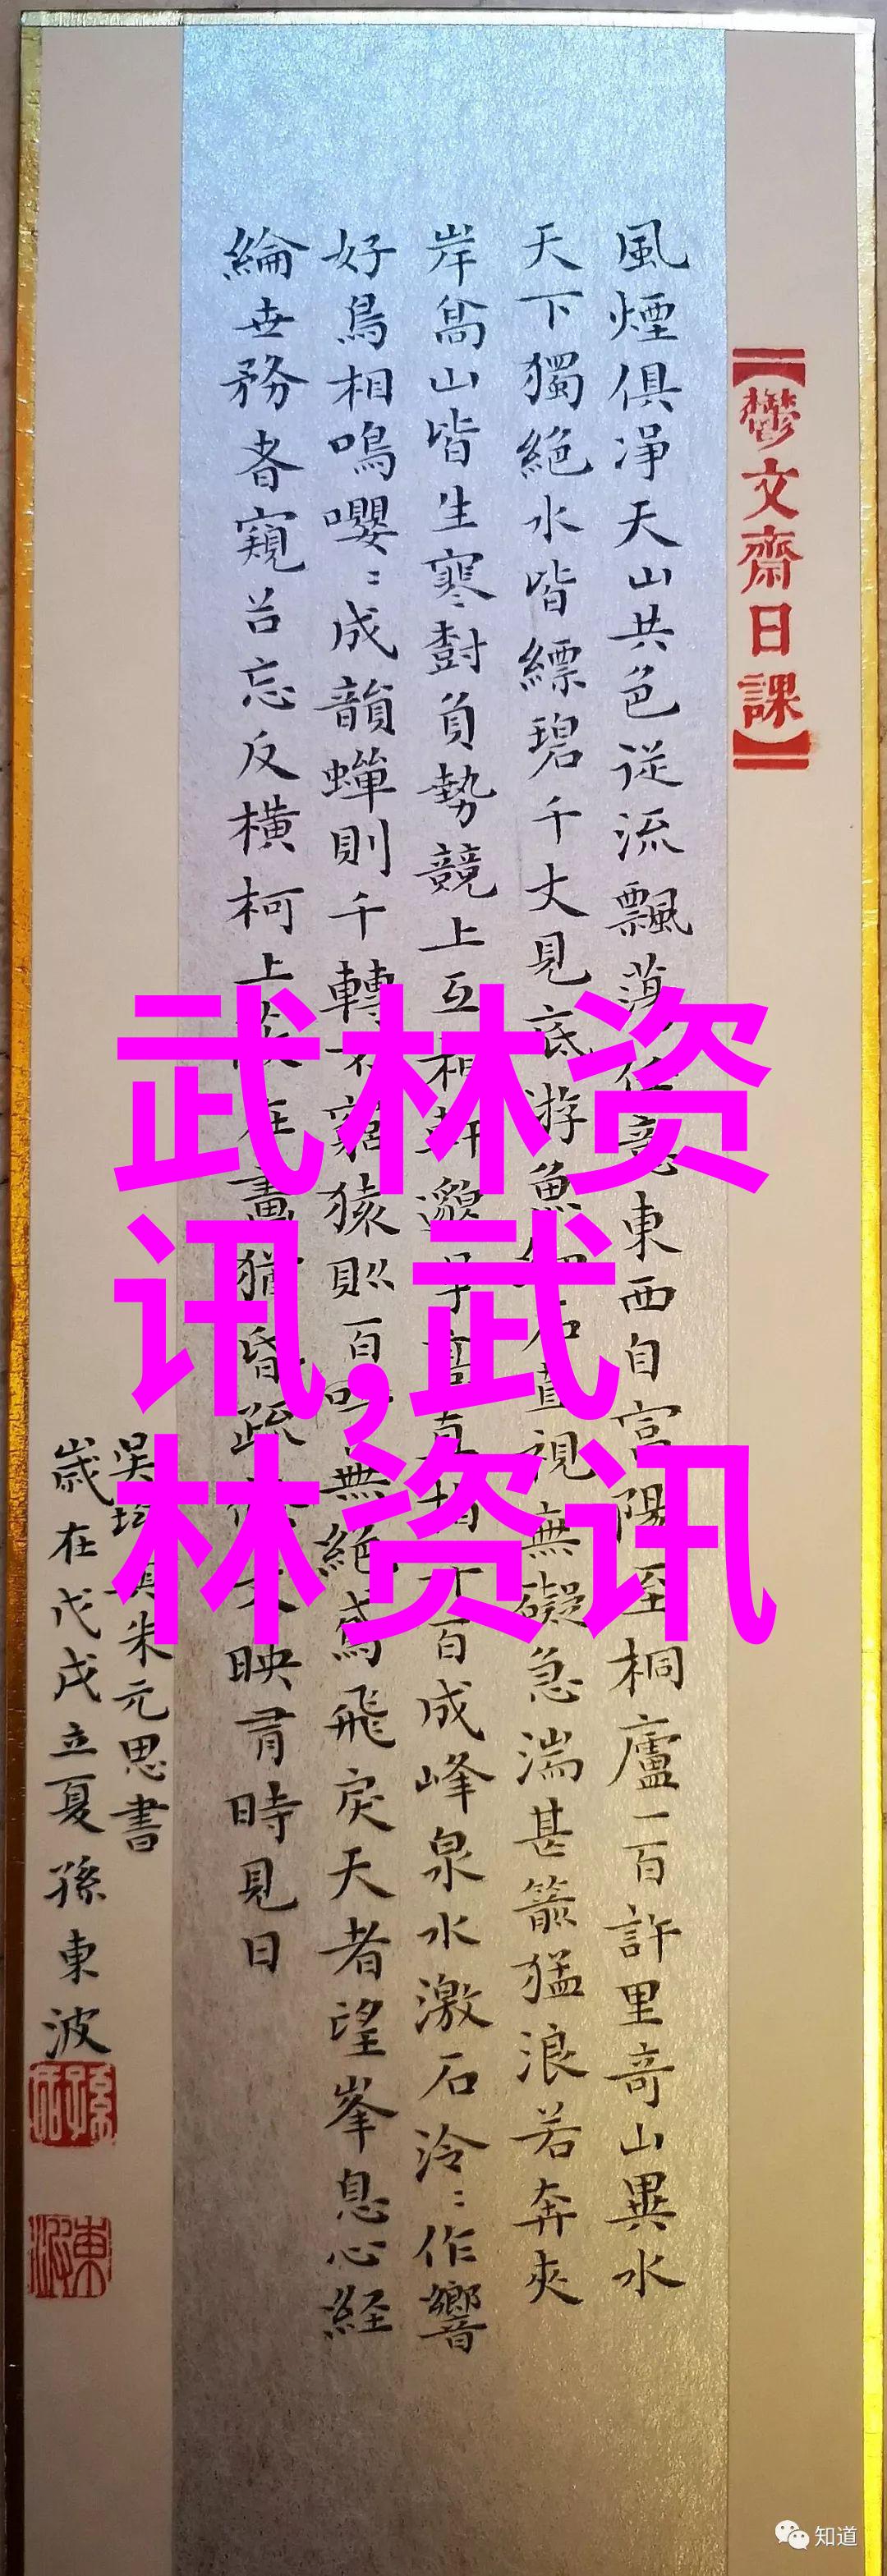 【鬱文齋日課】
風煙俱淨天山共色從流飄蕩任意東西自富陽至桐廬一百許里奇山異水
天下獨絕水皆縹碧千丈見底游魚細石直視無礙急湍甚箭猛浪若奔夾
岸高山皆生寒樹負勢競上互相軒邈爭高直指千百成峰泉水激石泠〻作響
好鳥相鳴嚶〻成韻蟬則千轉不窮猿則百叫無絕鳶飛戾天者望峯息心経
綸世務者窺谷忘反橫柯上蔽在晝猶昏疏條交映有時見日
吳均與朱元思書
歲在戊戌立夏孫東波
武林资
讯,武
林资讯
知道